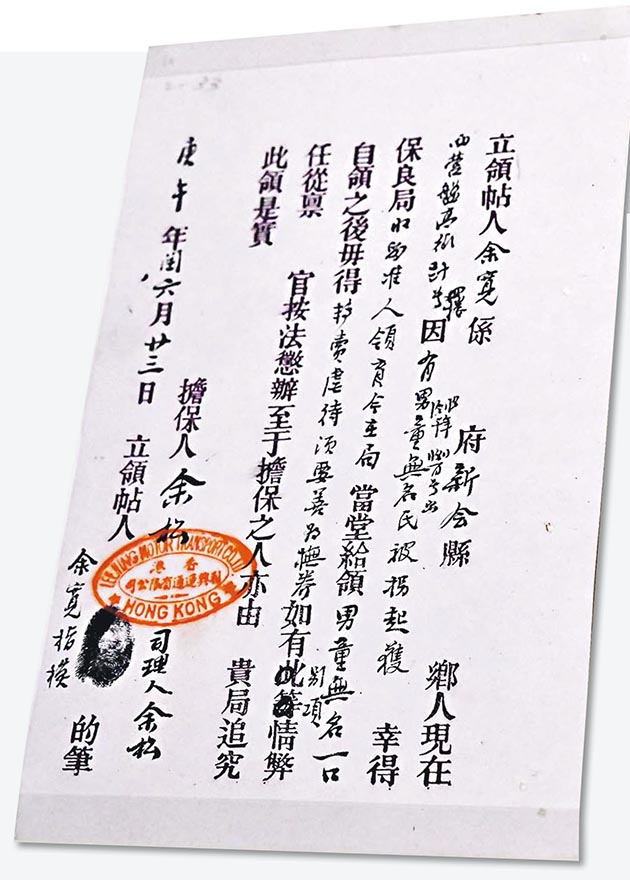 立領帖人余寬係 府新会縣 鄉人現在
西营盤高街計号 因有男童無名氏被拐起獲 幸得
保良局收留准人領育今在局 當堂給領男童無名一口
自領之後毋得轉賣虐待須要善为撫养如有別項情弊
任從稟 官按法懲辦至于擔保之人亦由 貴局追究
此領是實
擔保人余松 司理人余松
庚午年閏六月廿三日 立領帖人 余寬指模 的筆
LEE HING MOTOR TRANSPORT CO. LTD
香港
利興運通有限公司
HONG KONG